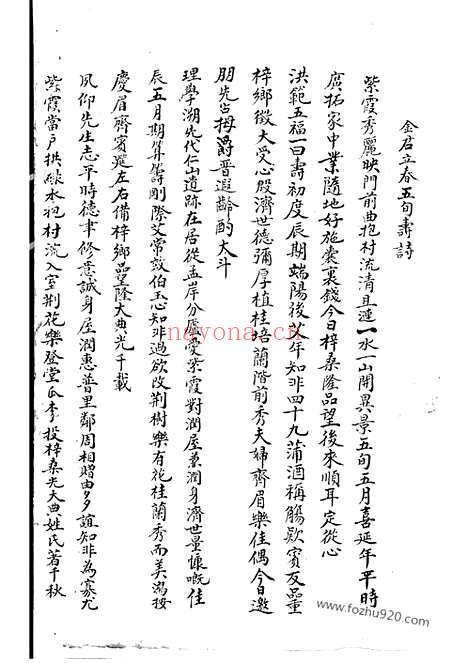 金君立春五旬壽詩
紫霞秀麗映門前曲抱村流清且漣一水一山開異景五旬五月喜延年平時
廣拓家中業隨地好施囊裏錢今日梓桑隆品望後來順耳定從心
洪範五福一曰壽初度辰期端陽後欣年知非四十九蒲酒稱觴歡賓友品重
梓鄉徵大受心殷濟世德彌厚植桂培蘭階前秀夫婦齊眉樂佳偶今日邀
朋先占拇爵晉遐齡酌大斗
理學溯先代仁山遺跡在居從孟岸分屋受紫霞對潤屋兼潤身濟世量慷慨佳
辰五月期算籌剛際艾常效伯玉心知非過欲改荆樹樂有花桂蘭秀而美鴻按
慶眉齊賓選左右備梓鄉品望隆大典光千載
夙仰先生志平時德聿修意誠身屋潤惠普里鄰周相贈由多誼知非為寡尤
紫霞當戶拱綠水抱村流入室荆花樂登堂瓜李投梓桑光大典姓氏著千秋
nayona.cn
www.fozhu920.com